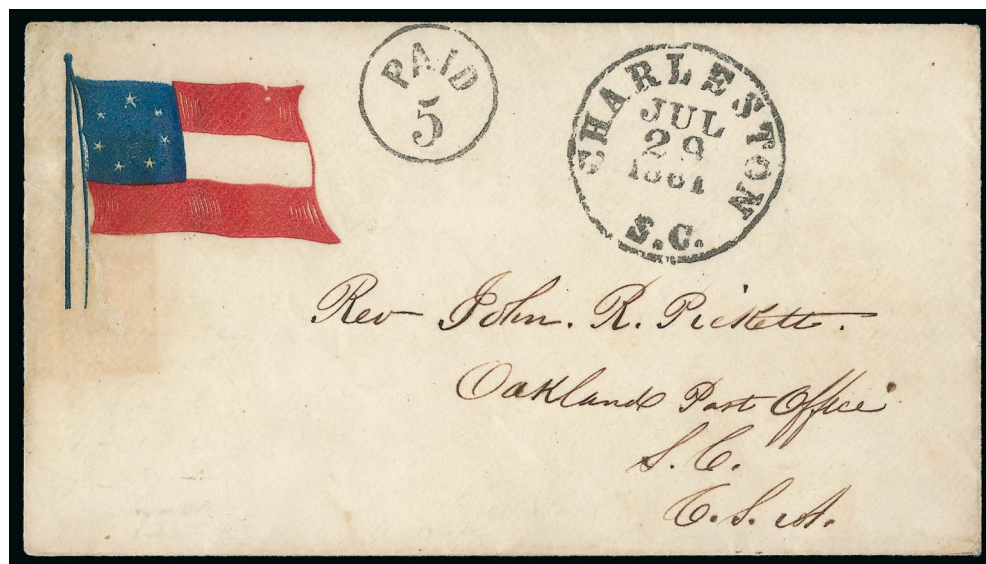 PAID
5
CHARLESTON
JUL
29
1861
S.C.
Rev John. R. Pickett.
Oakland Post Office
S. C.
C. S. A.